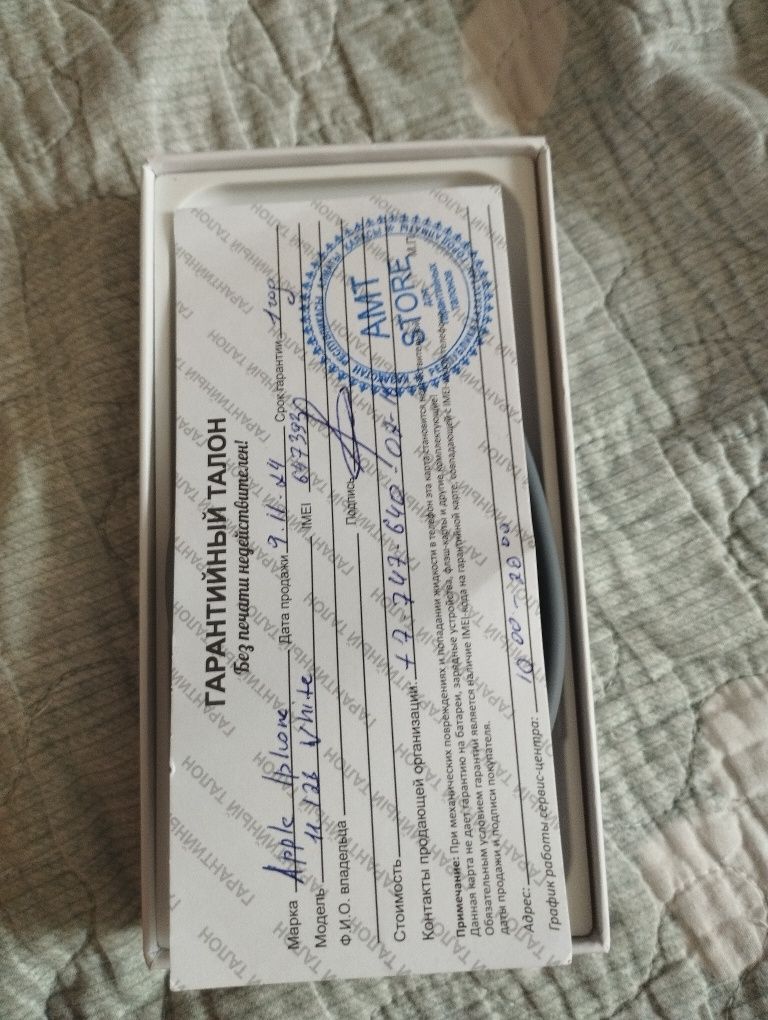 ГАРАНТИЙНЫЙ ТАЛОН
Без печати недействителен!
Марка Apple Iphone Дата продажи 9.11.24 Срок гарантии 1 год
Модель 11/128 White IMEI 6473930
Ф.И.О. владельца Подпись
Стоимость М.П.
Контакты продающей организации: +7 747 640
Примечание: При механических повреждениях и попадании жидкости в телефон эта карта становится
Данная карта не дает гарантию на батареи, зарядные устройства, флэш-карты и другие комплектующие!
Обязательным условием гарантий является наличие IMEI-кода на гарантийной карте, совпадающей с IMEI телефона,
даты продажи и подписи покупателя.
Адрес:
График работы сервис-центра: 10 00 - 20 00
AMT
STORE
для
гарантийных
талонов